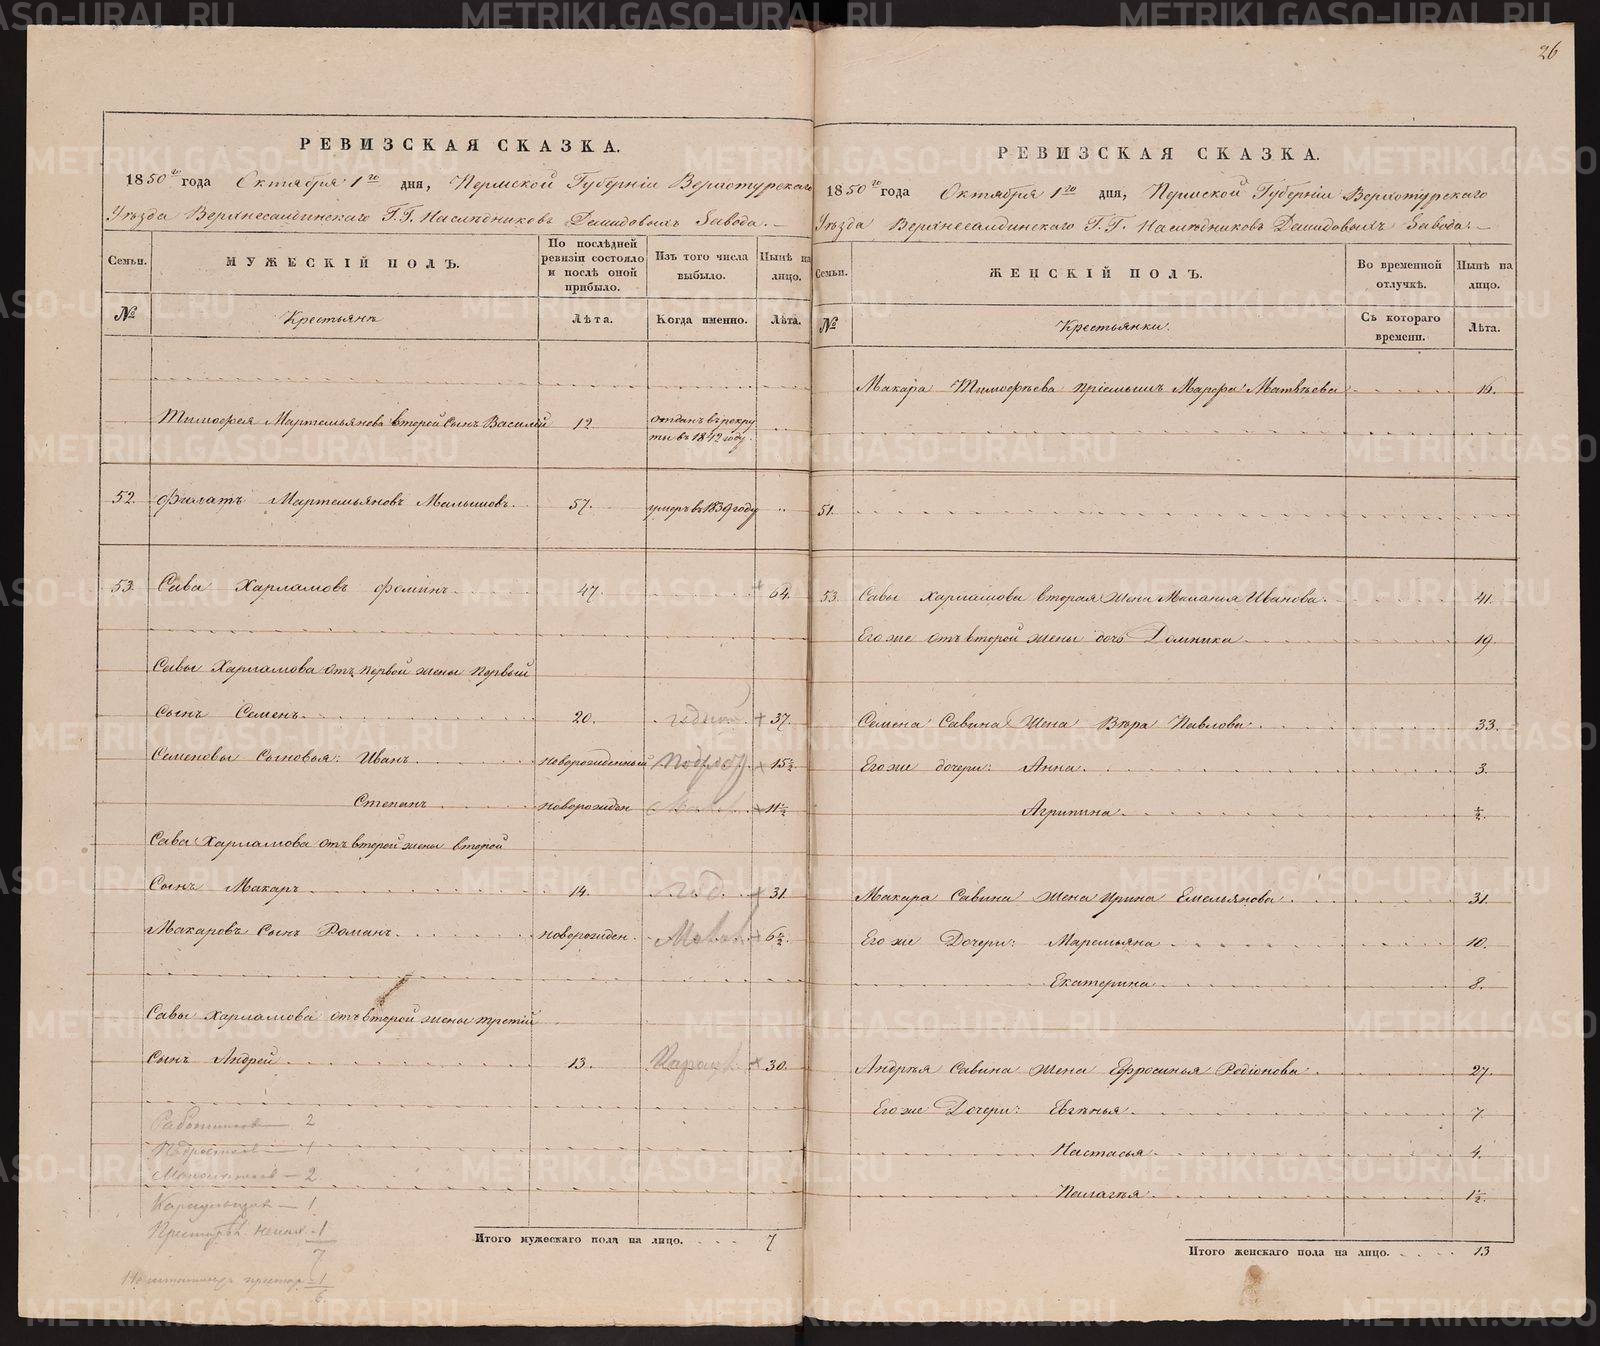 26
РЕВИЗСКАЯ СКАЗКА.
1850го года Октября 1го дня, Пермской Губернiи Верхотурскаго
Уѣзда Верхнесалдинскаго Г.Г. Наслѣдниковъ Демидовыхъ Завода.
Семьи.
МУЖЕСКIЙ ПОЛЪ.
По послѣдней ревизiи состояло и послѣ оной прибыло.
Изъ того числа выбыло.
Нынѣ на лицо.
№
Крестьянъ
Лѣта.
Когда именно.
Лѣта.
Тимофея Мартемьянова второй Сынъ Василiй 12 отданъ въ рекру
ты въ 1842 году.
52. Филатъ Мартемьяновъ Малышовъ. 57. умеръ въ 1839 году
53. Сава Харламовъ Фоминъ 47. 64.
Савы Харламова отъ первой жены первый
сынъ Семенъ. 20. годный + 37.
Семеновы Сыновья: Иванъ новорожденный 15½
Степанъ новорожден 11½
Сава Харламова отъ второй жены второй
Сынъ Макаръ 14. год. + 31.
Макаровъ Сынъ Романъ. новорожден. 6½.
Савы Харламова отъ второй жены третiй
сынъ Андрей 13. + 30.
Работников — 2
Подростков — 1
Малолетков — 2
Караульщик — 1
1
7
1
6
Итого мужескаго пола на лицо. 7
РЕВИЗСКАЯ СКАЗКА.
1850го года Октября 1го дня, Пермской Губернiи Верхотурскаго
Уѣзда Верхнесалдинскаго Г.Г. Наслѣдниковъ Демидовыхъ Завода.
Семьи.
ЖЕНСКIЙ ПОЛЪ.
Во временной отлучкѣ.
Нынѣ на лицо.
№
Крестьянки.
Съ котораго времени.
Лѣта.
Макара Тимофѣева прiемышъ Марфа Матвѣева 16.
51.
53. Савы Харламова вторая жена Меланiя Иванова. 41.
Его же отъ второй жены дочь Домника 19.
Семена Савина Жена Вѣра Павлова 33.
Его же дочери: Анна. 3.
Агрипина ½.
Макара Савина жена Ирина Емельянова 31.
Его же Дочери: Маремьяна 10.
Екатерина 8.
Андрѣя Савина жена Ефросинья Родiонова 27.
Его же Дочери: Евгѣнья 7.
Настасья 4.
Пелагѣя 1½.
Итого женскаго пола на лицо. 13
METRIKI.GASO-URAL.RU